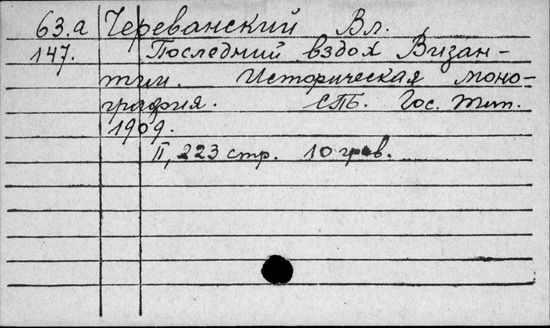 63.а Череванский Вл.
147. Последний вздох Визан-
тии. Историческая моно-
графия. СПБ. Гос. тип.
1909.
II, 223 стр. 10 грав.